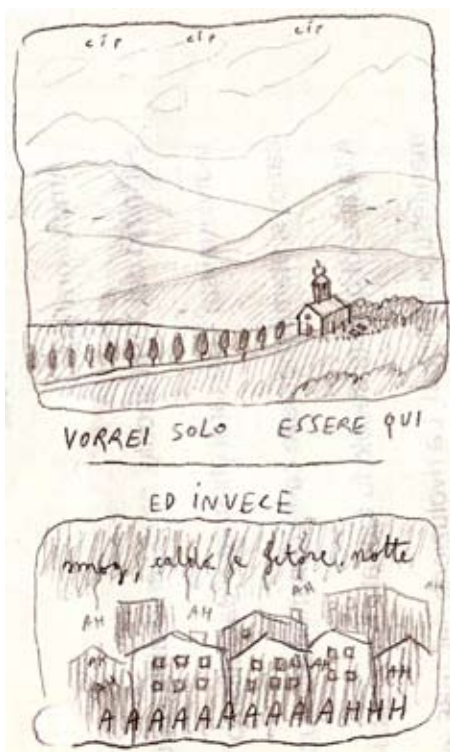 cip cip cip
VORREI SOLO ESSERE QUI
ED INVECE
smog, caldo e fetore, notte
AH AH
AH AH
AH
AH AH
AH AH
AAAAAAAAAAHHH